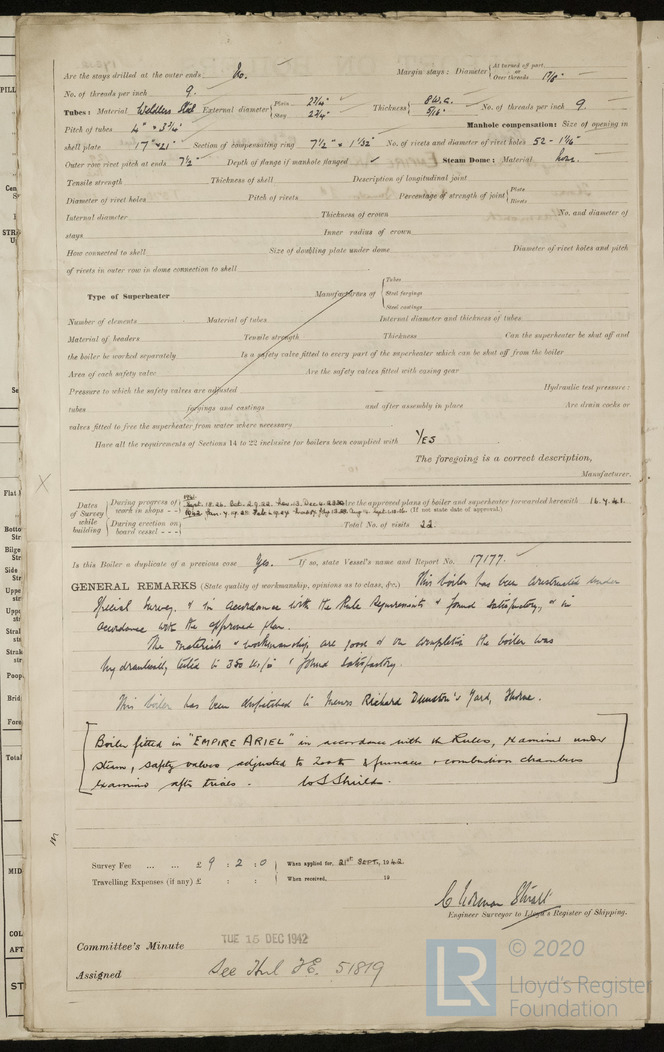 Are the stays drilled at the outer ends No. Margin stays: Diameter { At turned off part, or Over threads 1 7/8"
No. of threads per inch 9.
Tubes: Material Weldless Steel External diameter { Plain 2 3/4" Stay 2 3/4" Thickness { 8 W.G. 5/16" No. of threads per inch 9.
Pitch of tubes 4" × 3 3/4" Manhole compensation: Size of opening in
shell plate 17" × 21" Section of compensating ring 7 1/2" × 1 1/32" No. of rivets and diameter of rivet holes 52 - 1 1/16"
Outer row rivet pitch at ends 7 1/2 Depth of flange if manhole flanged ✓ Steam Dome: Material None.
Tensile strength Thickness of shell Description of longitudinal joint
Diameter of rivet holes Pitch of rivets Percentage of strength of joint { Plate Rivets
Internal diameter Thickness of crown No. and diameter of
stays Inner radius of crown
How connected to shell Size of doubling plate under dome Diameter of rivet holes and pitch
of rivets in outer row in dome connection to shell
Type of Superheater Manufacturers of { Tubes Steel forgings Steel castings
Number of elements Material of tubes Internal diameter and thickness of tubes
Material of headers Tensile strength Thickness Can the superheater be shut off and
the boiler be worked separately Is a safety valve fitted to every part of the superheater which can be shut off from the boiler
Area of each safety valve Are the safety valves fitted with easing gear
Pressure to which the safety valves are adjusted Hydraulic test pressure:
tubes forgings and castings and after assembly in place Are drain cocks or
valves fitted to free the superheater from water where necessary
Have all the requirements of Sections 14 to 22 inclusive for boilers been complied with YES
The foregoing is a correct description,
Manufacturer.
Dates of Survey while building { During progress of work in shops - - } 1941 Sept. 18. 26. Oct. 2. 9. 22. Nov. 13. Dec. 4. Are the approved plans of boiler and superheater forwarded herewith 16.4.41.
1942 Jan. (If not state date of approval.)
{ During erection on board vessel - - - } Total No. of visits 22.
Is this Boiler a duplicate of a previous case Yes. If so, state Vessel's name and Report No. 17177.
GENERAL REMARKS (State quality of workmanship, opinions as to class, &c.) This boiler has been constructed under
Special Survey, & in accordance with the Rule Requirements & found satisfactory, & in
accordance with the approved plan.
The materials & workmanship are good & on completion the boiler was
hydraulically tested to 350 lbs/□" & found satisfactory.
This boiler has been despatched to Messrs Richard Dunston's Yard, Thorne.
Boiler fitted in "EMPIRE ARIEL" in accordance with the Rules, examined under
steam, safety valves adjusted to 200 lb & furnaces & combustion chambers
examined after trials. W S Shields.
Survey Fee ... ... £ 9 : 2 : 0 When applied for, 21st SEPT, 1942
Travelling Expenses (if any) £ : : When received, 19
Engineer Surveyor to Lloyd's Register of Shipping.
Committee's Minute TUE 15 DEC 1942
Assigned See Hul F.E. 51819
© 2020
LR Lloyd's Register
Foundation